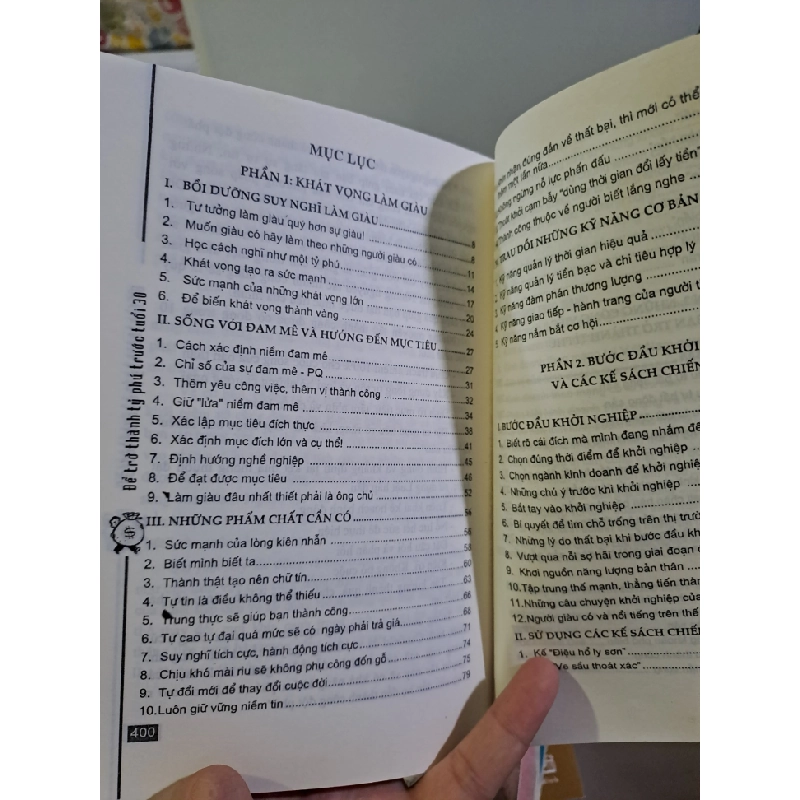 MỤC LỤC
PHẦN 1: KHÁT VỌNG LÀM GIÀU
I. BỒI DƯỠNG SUY NGHĨ LÀM GIÀU
1. Tư tưởng làm giàu quý hơn sự giàu! 8
2. Muốn giàu có hãy làm theo những người giàu có 8
3. Học cách nghĩ như một tỷ phú 11
4. Khát vọng tạo ra sức mạnh 14
5. Sức mạnh của những khát vọng lớn 17
6. Để biến khát vọng thành vàng 20
II. SỐNG VỚI ĐAM MÊ VÀ HƯỚNG ĐẾN MỤC TIÊU 24
1. Cách xác định niềm đam mê 27
2. Chỉ số của sự đam mê - PQ 27
3. Thêm yêu công việc, thêm vị thành công 31
4. Giữ "lửa" niềm đam mê 32
5. Xác lập mục tiêu đích thực 34
6. Xác định mục đích lớn và cụ thể! 38
7. Định hướng nghề nghiệp 41
8. Để đạt được mục tiêu 45
9. Làm giàu đâu nhất thiết phải là ông chủ 46
III. NHỮNG PHẨM CHẤT CẦN CÓ 52
1. Sức mạnh của lòng kiên nhẫn 56
2. Biết mình biết ta 58
3. Thành thật tạo nên chữ tín 60
4. Tự tin là điều không thể thiếu 63
5. Trung thực sẽ giúp bạn thành công 66
6. Tự cao tự đại quá mức sẽ có ngày phải trả giá 68
7. Suy nghĩ tích cực, hành động tích cực 71
8. Chịu khó mài rìu sẽ không phụ công đốn gỗ 74
9. Tự đổi mới để thay đổi cuộc đời 75
10. Luôn giữ vững niềm tin 79
400
Để trở thành tỷ phú trước tuổi 30
nhận đúng đắn về thất bại, thì mới có thể
một lần nữa
ngừng nỗ lực phấn đấu
Thoát khỏi cạm bẫy "dùng thời gian đổi lấy tiền"
Thành công thuộc về người biết lắng nghe
TRAU DỒI NHỮNG KỸ NĂNG CƠ BẢN
1. Kỹ năng quản lý thời gian hiệu quả
2. Kỹ năng quản lý tiền bạc và chi tiêu hợp lý
3. Kỹ năng đàm phán thương lượng
4. Kỹ năng giao tiếp - hành trang của người t
5. Kỹ năng nắm bắt cơ hội
PHẦN 2. BƯỚC ĐẦU KHỞI
VÀ CÁC KẾ SÁCH CHIẾN
I. BƯỚC ĐẦU KHỞI NGHIỆP
1. Biết rõ cái đích mà mình đang nhắm đế
2. Chọn đúng thời điểm để khởi nghiệp
3. Chọn ngành kinh doanh để khởi nghiệp
4. Những chú ý trước khi khởi nghiệp
5. Bắt tay vào khởi nghiệp
6. Bí quyết để tìm chỗ trống trên thị trườ
7. Những lý do thất bại khi bước đầu kh
8. Vượt qua nỗi sợ hãi trong giai đoạn
9. Khơi nguồn năng lượng bản thân
10. Tập trung thế mạnh, thẳng tiến thàn
11. Những câu chuyện khởi nghiệp của
12. Người giàu có và nổi tiếng trên thế
II. SỬ DỤNG CÁC KẾ SÁCH CHIẾ
1. Kế "Điệu hổ ly sơn"
"Ve sầu thoát xác"